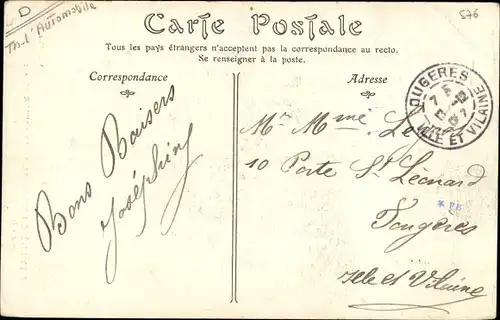 D
Th. l'Automobile
576
Carte Postale
Tous les pays étrangers n'acceptent pas la correspondance au recto.
Se renseigner à la poste.
Correspondance
Adresse
Bons Baisers
Joséphine
OUGERES
7 5
-12
07
ILLE ET VILAINE
Mr Mme
10 Porte St Léonard
Fougères
Ille et Vilaine